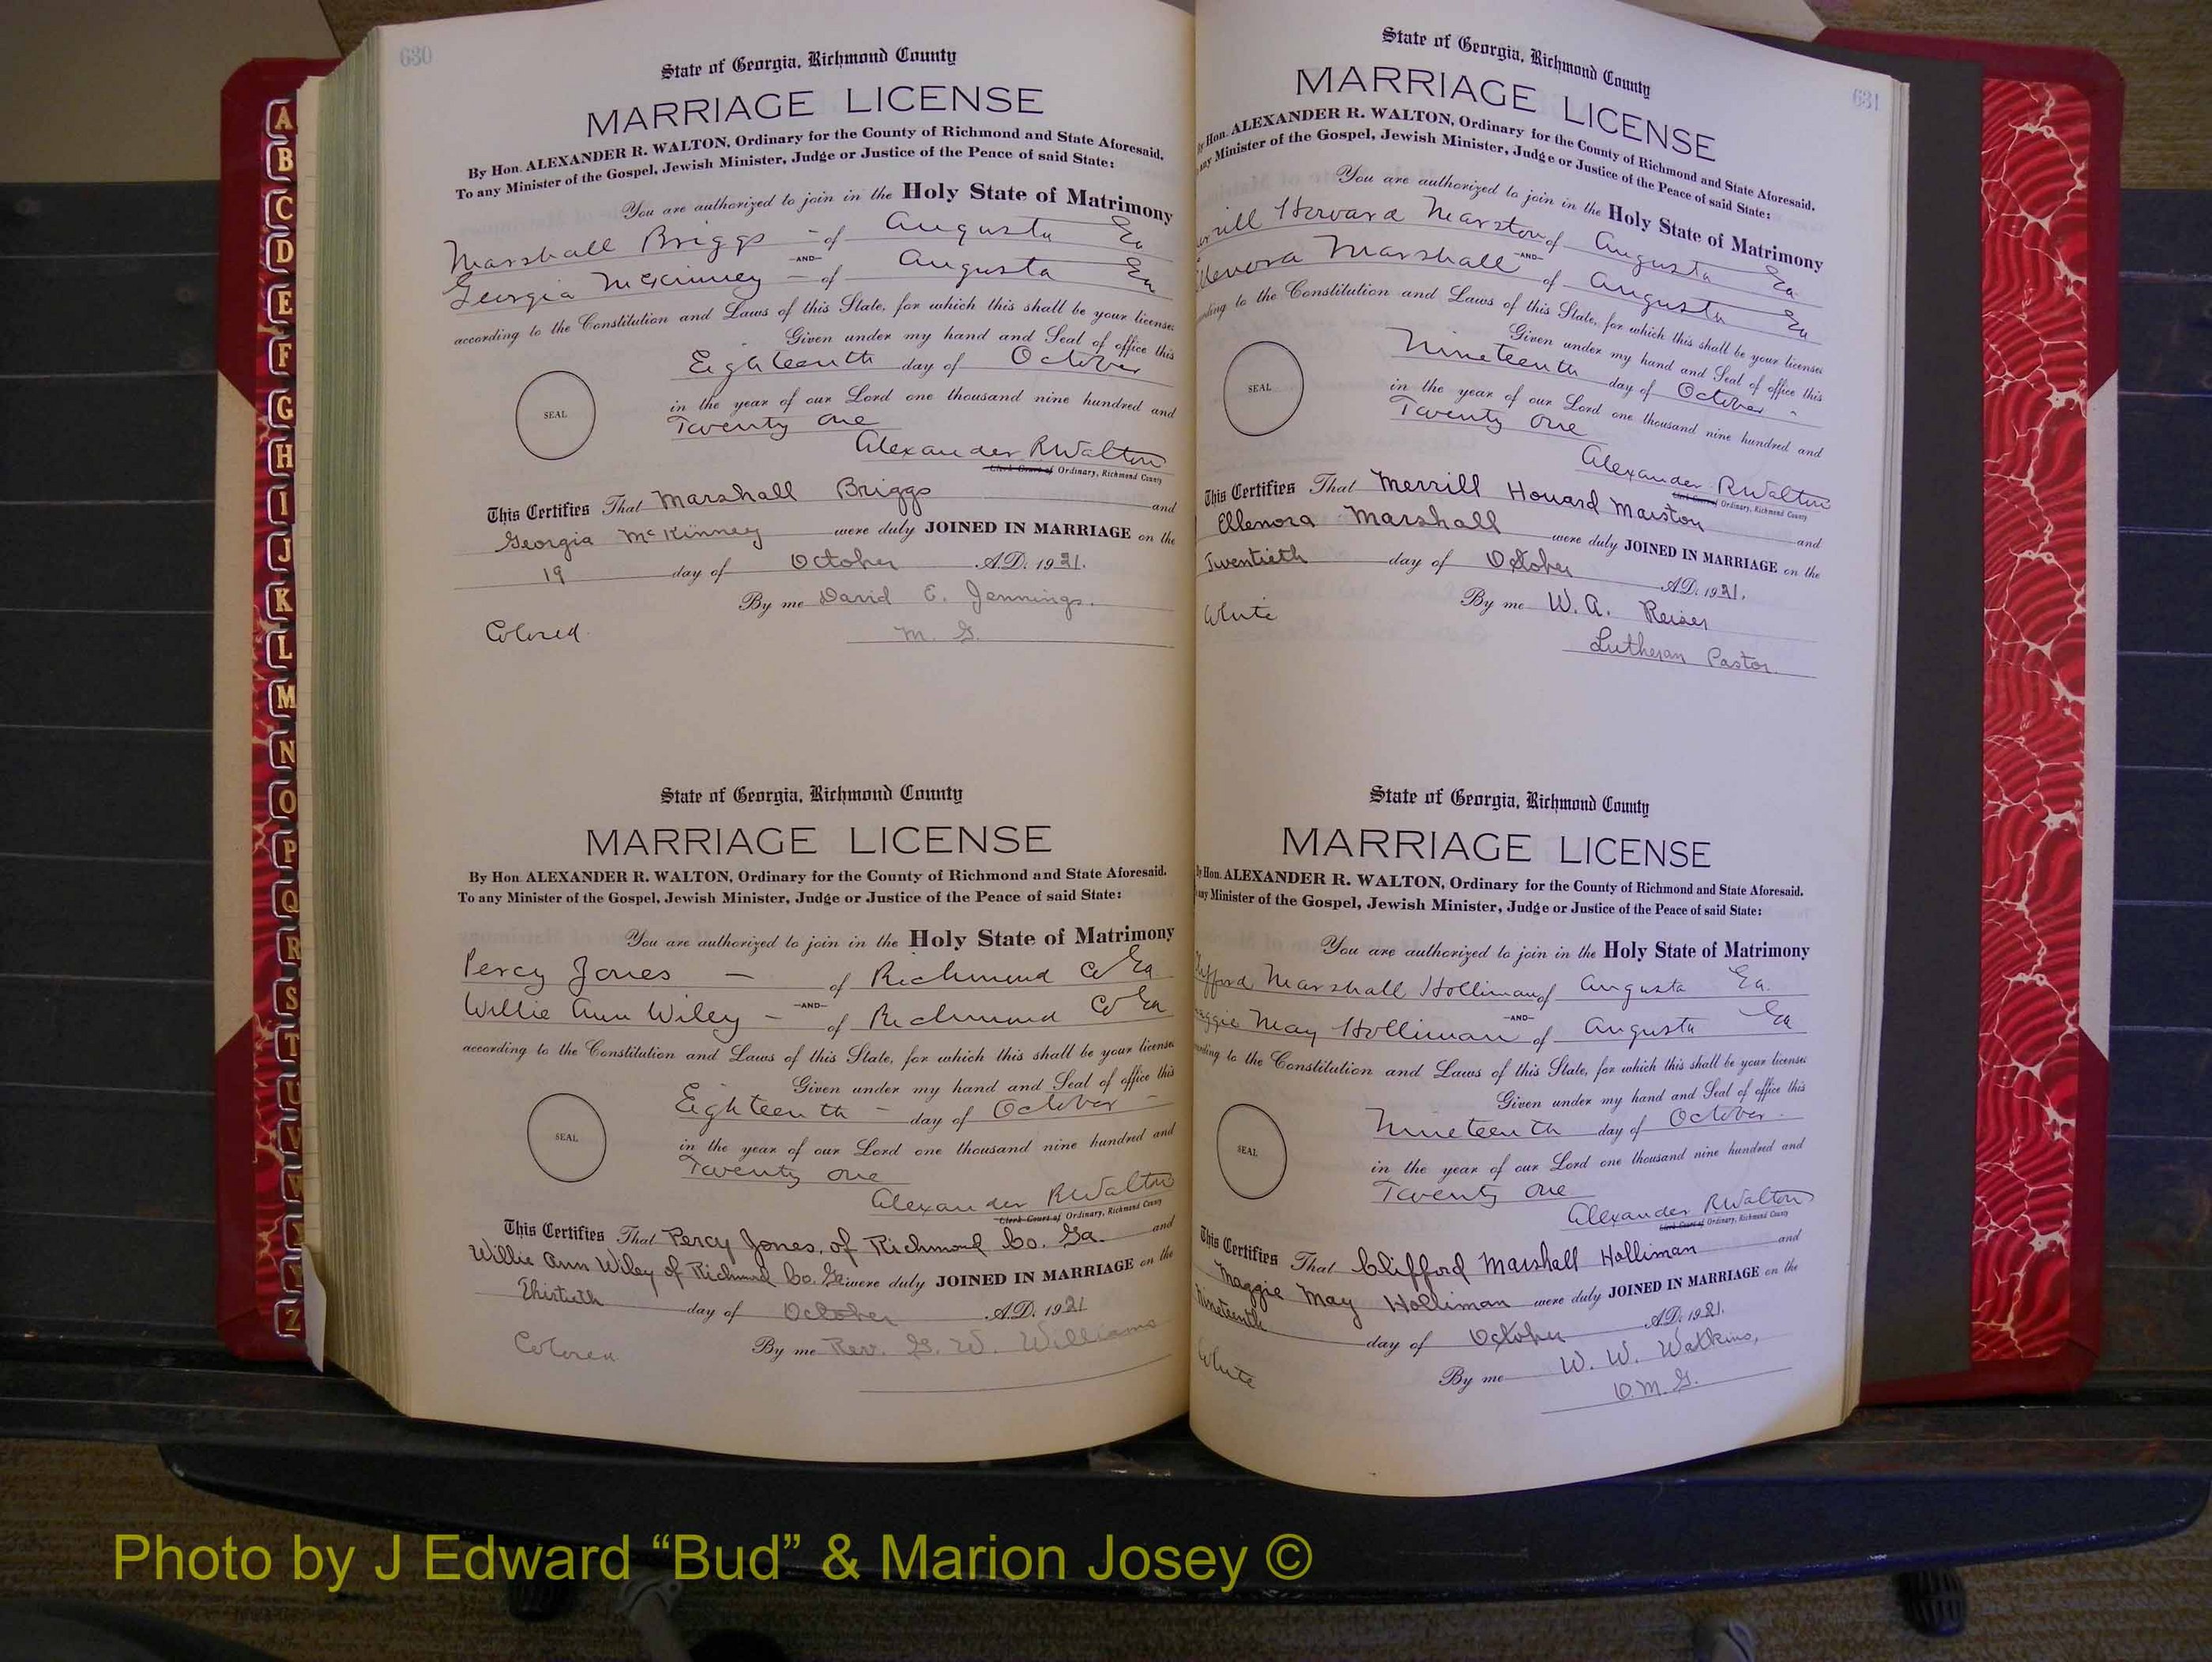 630
State of Georgia, Richmond County
MARRIAGE LICENSE
By Hon. ALEXANDER R. WALTON, Ordinary for the County of Richmond and State Aforesaid.
To any Minister of the Gospel, Jewish Minister, Judge or Justice of the Peace of said State:
You are authorized to join in the Holy State of Matrimony
Marshall Briggs - of Augusta Ga
-AND-
Georgia McKinney - of Augusta Ga
according to the Constitution and Laws of this State, for which this shall be your license
Given under my hand and Seal of office this
Eighteenth day of October
SEAL
in the year of our Lord one thousand nine hundred and
Twenty one
Alexander R Walton
Clerk Court of Ordinary, Richmond County
This Certifies That Marshall Briggs and
Georgia McKinney were duly JOINED IN MARRIAGE on the
19 day of October A.D. 1921.
By me David E. Jennings.
Colored M. G.
State of Georgia, Richmond County
MARRIAGE LICENSE
By Hon. ALEXANDER R. WALTON, Ordinary for the County of Richmond and State Aforesaid.
To any Minister of the Gospel, Jewish Minister, Judge or Justice of the Peace of said State:
You are authorized to join in the Holy State of Matrimony
Percy Jones - of Richmond Co Ga
-AND-
Willie Ann Wiley - of Richmond Co Ga
according to the Constitution and Laws of this State, for which this shall be your license
Given under my hand and Seal of office this
Eighteenth - day of October -
SEAL
in the year of our Lord one thousand nine hundred and
Twenty one
Alexander R Walton
Clerk Court of Ordinary, Richmond County
This Certifies That Percy Jones, of Richmond Co. Ga. and
Willie Ann Wiley of Richmond Co. Ga. were duly JOINED IN MARRIAGE on the
Thirtieth day of October A.D. 1921
Colored By me Rev. G. W. Williams
631
State of Georgia, Richmond County
MARRIAGE LICENSE
Hon. ALEXANDER R. WALTON, Ordinary for the County of Richmond and State Aforesaid.
any Minister of the Gospel, Jewish Minister, Judge or Justice of the Peace of said State:
You are authorized to join in the Holy State of Matrimony
rrill Howard Marston of Augusta Ga
-AND-
llenora Marshall of Augusta Ga
rding to the Constitution and Laws of this State, for which this shall be your license
Given under my hand and Seal of office this
Nineteenth day of October -
SEAL
in the year of our Lord one thousand nine hundred and
Twenty one
Alexander R Walton
Clerk Court of Ordinary, Richmond County
This Certifies That Merrill Howard Marston and
Ellenora Marshall were duly JOINED IN MARRIAGE on the
Twentieth day of October A.D. 1921.
White By me W. A. Reiser
Lutheran Pastor
State of Georgia, Richmond County
MARRIAGE LICENSE
By Hon. ALEXANDER R. WALTON, Ordinary for the County of Richmond and State Aforesaid.
any Minister of the Gospel, Jewish Minister, Judge or Justice of the Peace of said State:
You are authorized to join in the Holy State of Matrimony
lifford Marshall Holliman of Augusta Ga.
-AND-
aggie May Holliman of Augusta Ga
ording to the Constitution and Laws of this State, for which this shall be your license
Given under my hand and Seal of office this
Nineteenth day of October -
SEAL
in the year of our Lord one thousand nine hundred and
Twenty one
Alexander R Walton
Clerk Court of Ordinary, Richmond County
This Certifies That Clifford Marshall Holliman and
Maggie May Holliman were duly JOINED IN MARRIAGE on the
Nineteenth day of October A.D. 1921.
White By me W. W. Watkins,
O. M. G.
A
B
C
D
E
F
G
H
I
J
K
L
M
N
O
P
Q
R
S
T
U
V
W
Z
Photo by J Edward “Bud” & Marion Josey ©